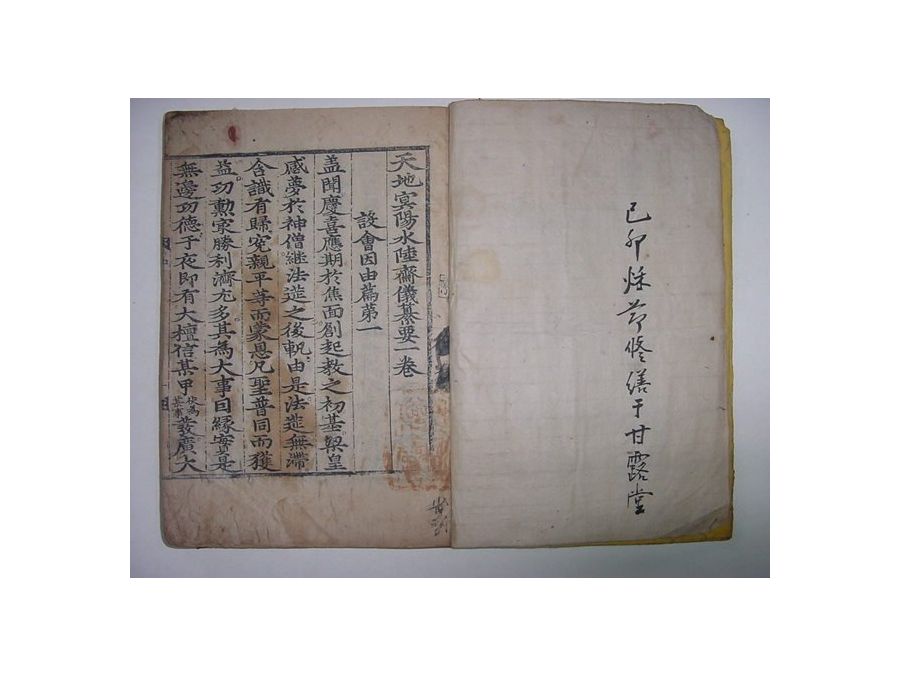 己卯秌節修繕于甘露堂
天地冥陽水陸齋儀纂要一卷
設會因由篇第一
盖聞慶喜應期於焦面創起教之初基梁皇
感夢於神僧継法筵之後軌由是法筵無滯
含識有歸寃親平等而蒙恩凡聖普同而獲
益功勲寂勝利濟尤多其為大事曰緣實是
無邊功德于夜即有大檀信某甲伏為某事發廣大